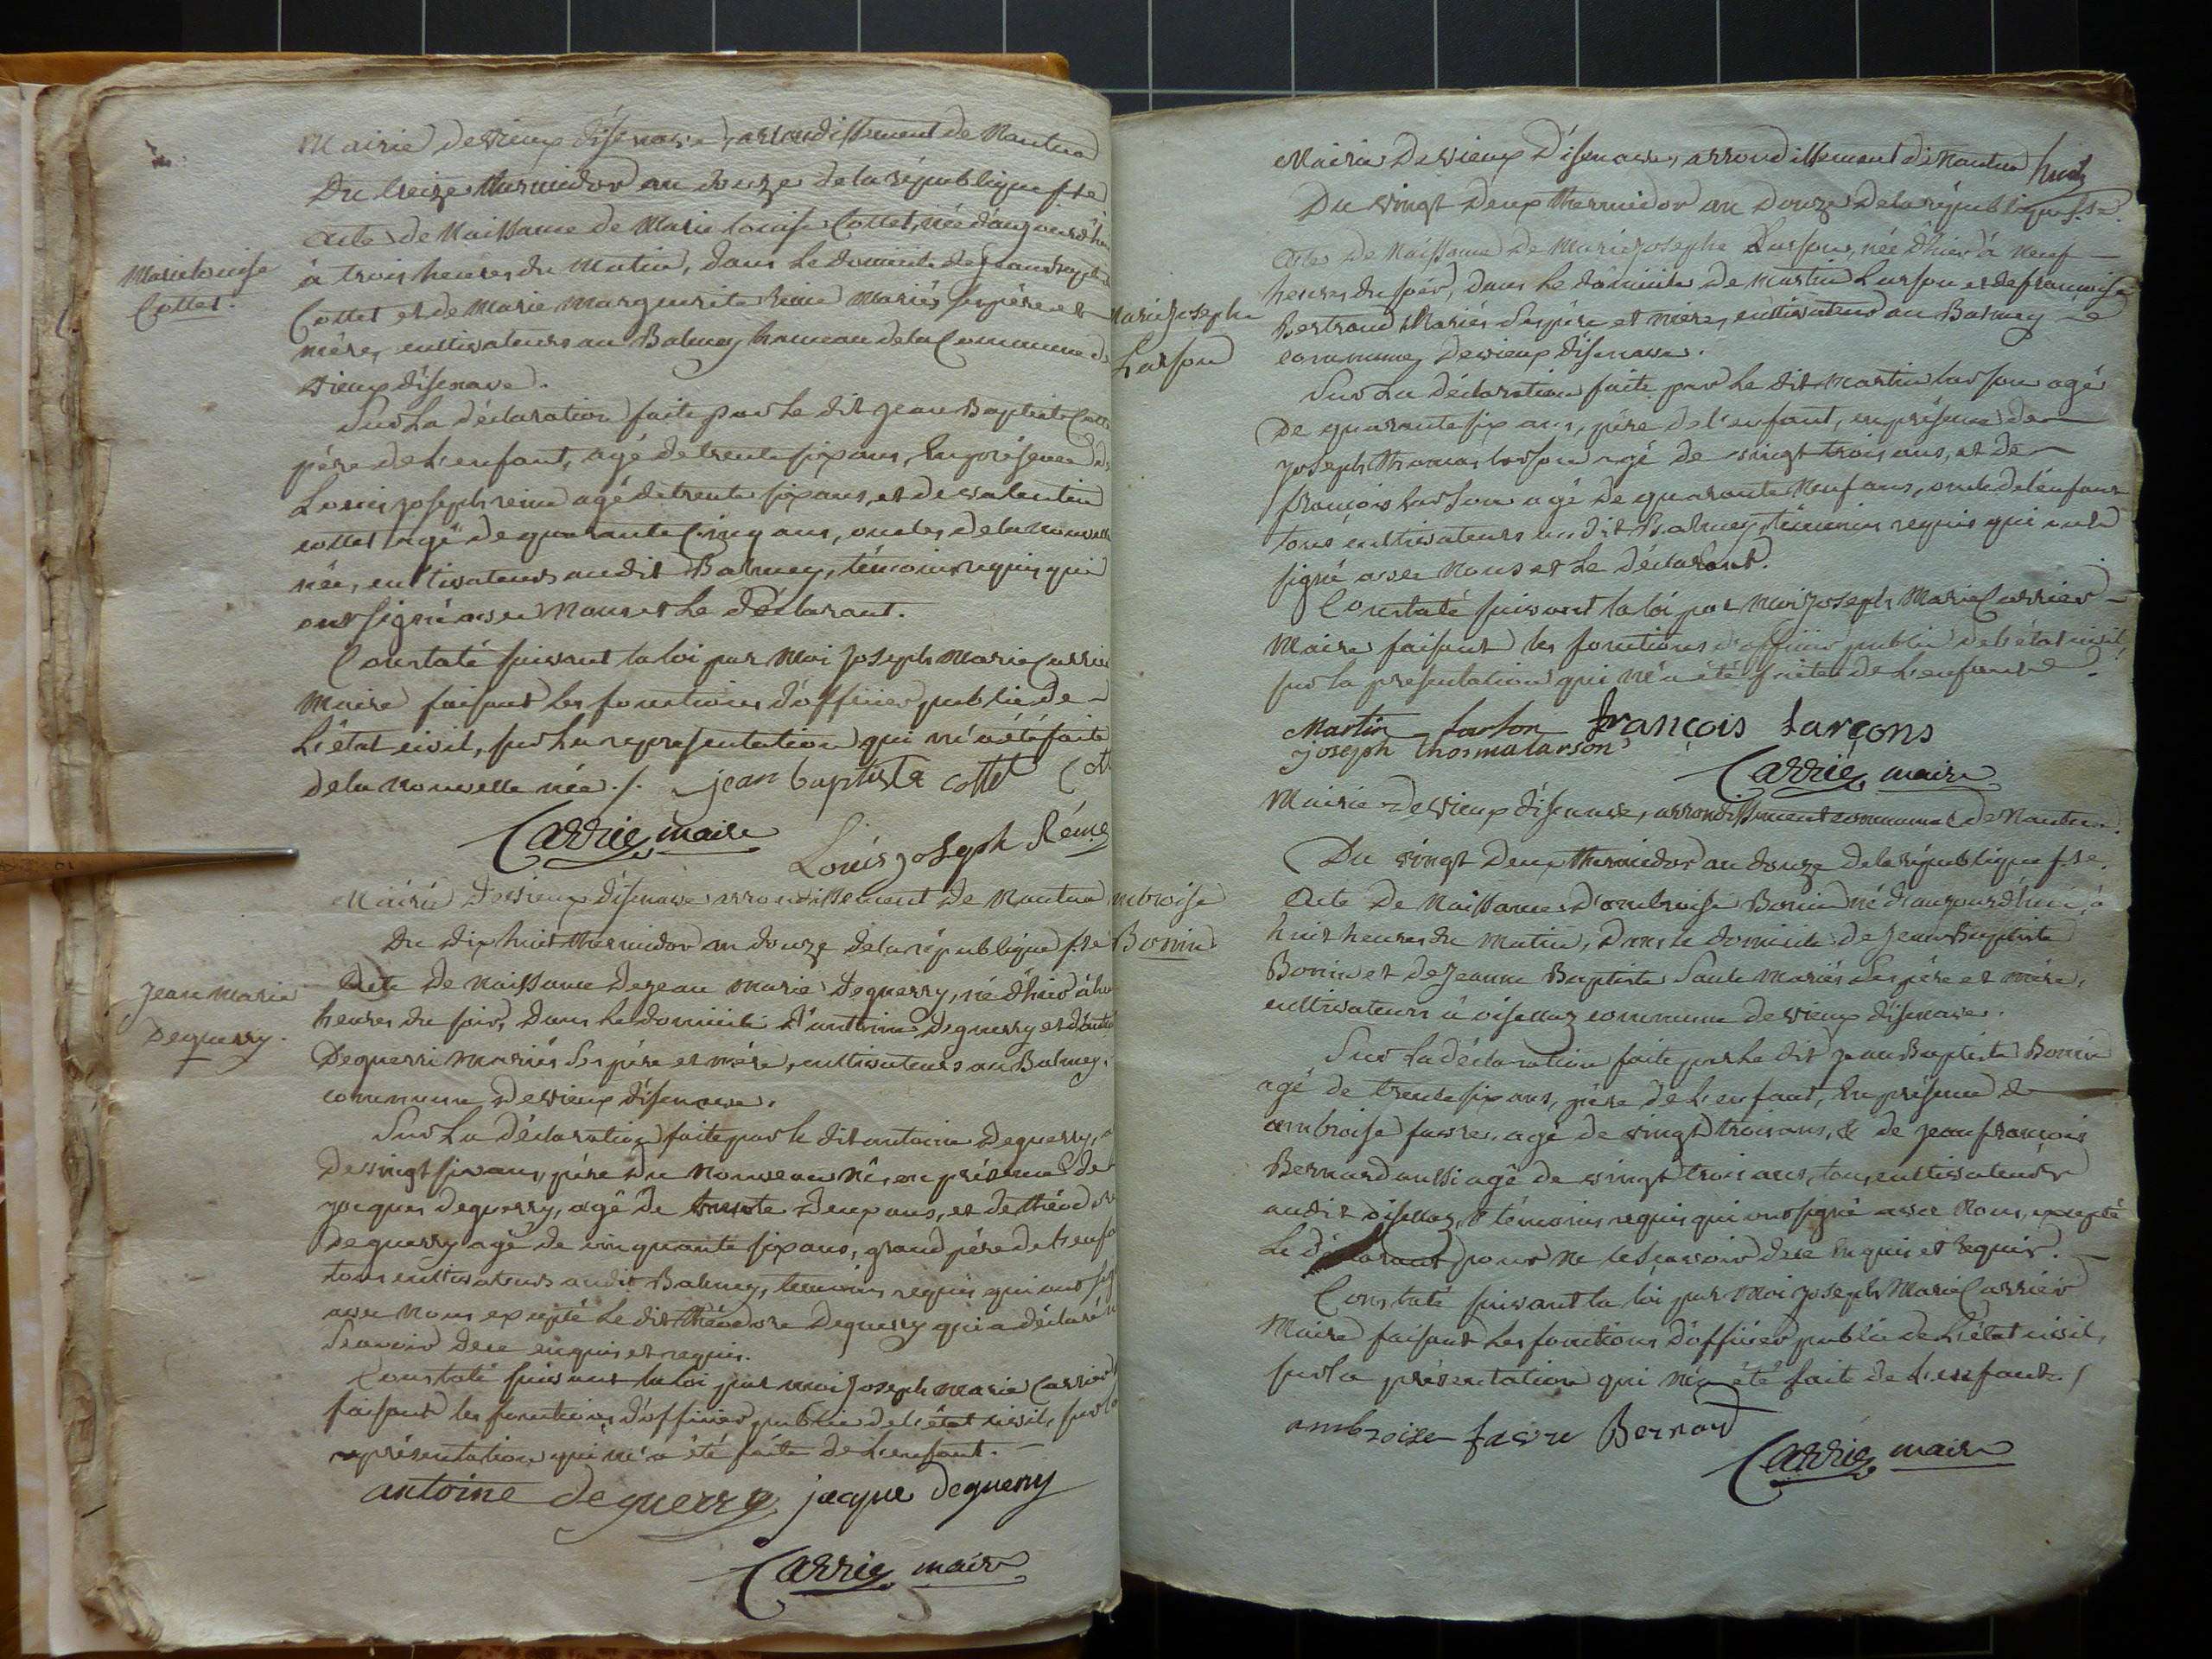 Mairie de vieux d'isenave, arrondissement de Nantua
Du treize thermidor an douze de la république f.se
Acte de Naissance de Marie louise Cottet, née d'aujourd'hui
à trois heures du Matin, dans le domicile de jean baptiste
Marie louise
Cottet.
Cottet et de Marie Marguerite reine Mariés ses père et
mère, cultivateurs au Balmey hameau de la Commune de
vieux d'isenave.
Sur la déclaration faite par le dit jean Baptiste Cotte
père de l'enfant, agé de trente six ans, En présence de
Louis joseph reine agé de trente six ans, et de valentin
cottet agé de quarante Cinq ans, oncles de la nouvelle
née, cultivateurs audit Balmey, témoins requis qui
ont signé avec Nous et le déclarant.
Constaté suivant la loi par Moi joseph Marie Carrier
Maire faisant les fonctions d'officier public de
L'état civil, sur la représentation qui m'a été faite
de la nouvelle née ./. jean baptiste cottet Cott
Carrier maire
Louis joseph Réine
Mairie de vieux d'isenave arrondissement de Nantua
Du dix huit thermidor an douze de la république f.se
Acte de Naissance de jean marie Deguerry, né d'hier à
jean Marie
Deguerry.
heures du soir, dans le domicile d'antoine Deguerry et
Deguerri Mariés ses père et mère, cultivateurs au Balmey,
commune de vieux d'isenave.
Sur la déclaration faite par le dit antoine Deguerry, a
de vingt six ans, père du nouveau né, en présence de
jacques deguerry, agé de trente deux ans, et de théodore
Deguerry agé de cinquante six ans, grand père de l'enfa
tous cultivateurs audit Balmey, témoins requis qui ont sig
avec nous excepté le dit théodore Deguerry qui a déclaré
Scavoir de ce enquis et requis.
Constaté suivant la loi par moi joseph marie Carrier
faisant les fonctions d'officier public de l'état civil, sur la
représentation qui m'a été faite de L'enfant.
antoine deguerry jacque deguerry
Carrier maire
Mairie de vieux d'isenave, arrondissement de Nantua huit
Du vingt deux thermidor an Douze de la république f.se.
Acte de Naissance de Marie josephe Larson, née d'hier à neuf
heures du soir, dans le domicile de Martin Larson et de françoise
Marie Josephe
Larson
Bertrand Mariés Ses père et mère, cultivateurs au Balmey
commune de vieux d'isenave.
Sur la déclaration faite par le dit Martin larson agé
De quarante six ans, père de l'enfant, en présence de
joseph thomas larson agé de vingt trois ans, et de
françois larson agé de quarante neuf ans, oncle de l'enfant
tous cultivateurs audit Balmey, témoins requis qui ont
signé avec Nous et le déclarant.
Constaté suivant la loi par Moi joseph Marie Carrier
Maire faisant les fonctions d'officier public de l'état civil,
sur la présentation qui m'a été faite de L'enfant.
Martin larson françois larçons
joseph thoma larson
Carrier maire
Mairie de vieux d'isenave, arrondissement communal de Nantua.
Du vingt deux thermidor an douze de la république f.se.
Acte de Naissance d'ambroise Bonin né d'aujourd'hui, à
ambroise
Bonin
huit heures du Matin, Dans le domicile de Jean Baptiste
Bonin et de Jeanne Baptiste Mariés Ses père et mère,
cultivateurs à oisellaz commune de vieux d'isenave.
Sur la déclaration faite par le dit jean Baptiste Bonin
agé de trente six ans, père de l'enfant, En présence de
ambroise favre, agé de vingt trois ans, & de jean françois
Bernard aussi agé de vingt trois ans, tous cultivateurs
audit oisellaz, témoins requis qui ont signé avec Nous, excepté
Le déclarant pour ne le Scavoir de ce Enquis et Requis.
Constaté suivant la loi par Moi joseph Marie Carrier
Maire faisant Les fonctions d'officier public de L'état civil,
sur la présentation qui m'a été fait de L'enfant. /
ambroise favre Bernard
Carrier maire